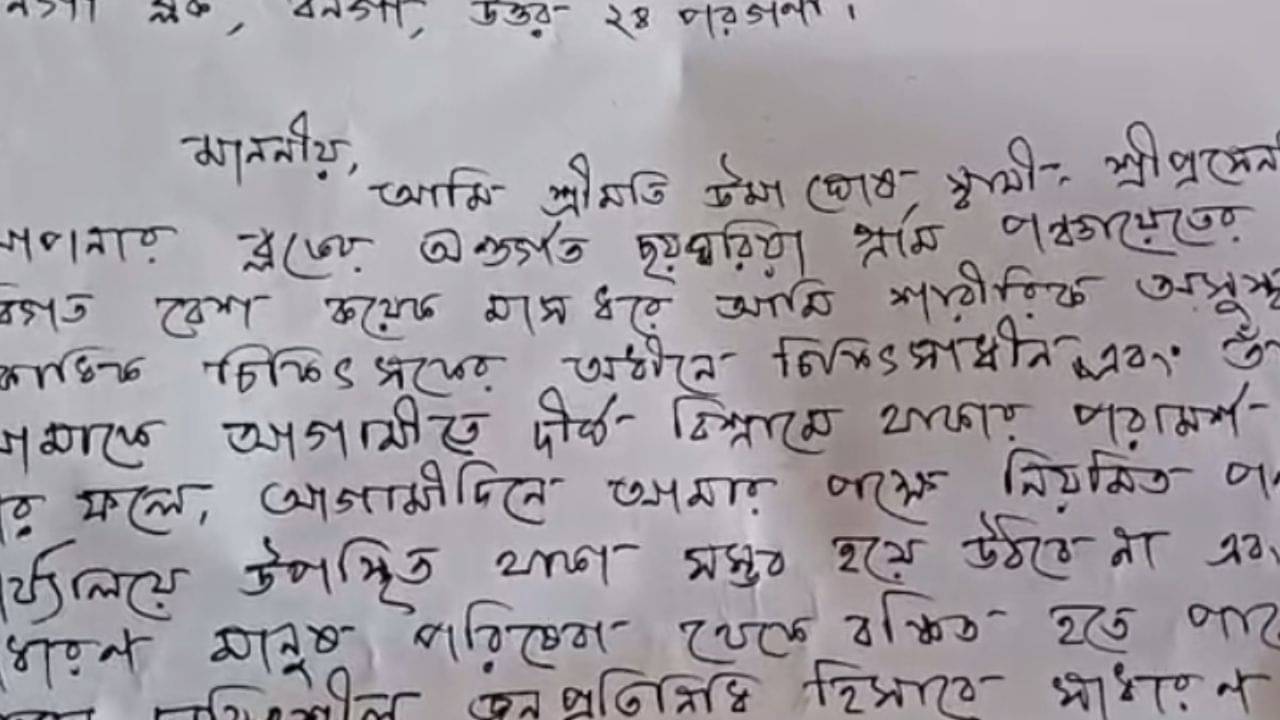 ব্লক, বনগাঁ, উত্তর ২৪ পরগণা।
মাননীয়,
আমি শ্রীমতি উমা ঘোষ, স্বামী- শ্রীপ্রসেন
আপনার ব্লকের অন্তর্গত ছয়ঘরিয়া গ্রাম পঞ্চায়েতের
বিগত বেশ কয়েক মাস ধরে আমি শারীরিক অসুস্থ
চিকিৎসকের অধীনে চিকিৎসাধীন এবং তাঁ
আমাকে আগামীতে দীর্ঘ বিশ্রামে থাকার পরামর্শ
র ফলে, আগামীদিনে আমার পক্ষে নিয়মিত
র্য্যালয়ে উপস্থিত থাকা সম্ভব হয়ে উঠবে না এবং
ধারণ মানুষ পরিষেবা থেকে বঞ্চিত হতে পারে
জনপ্রতিনিধি হিসাবে সাধারণ